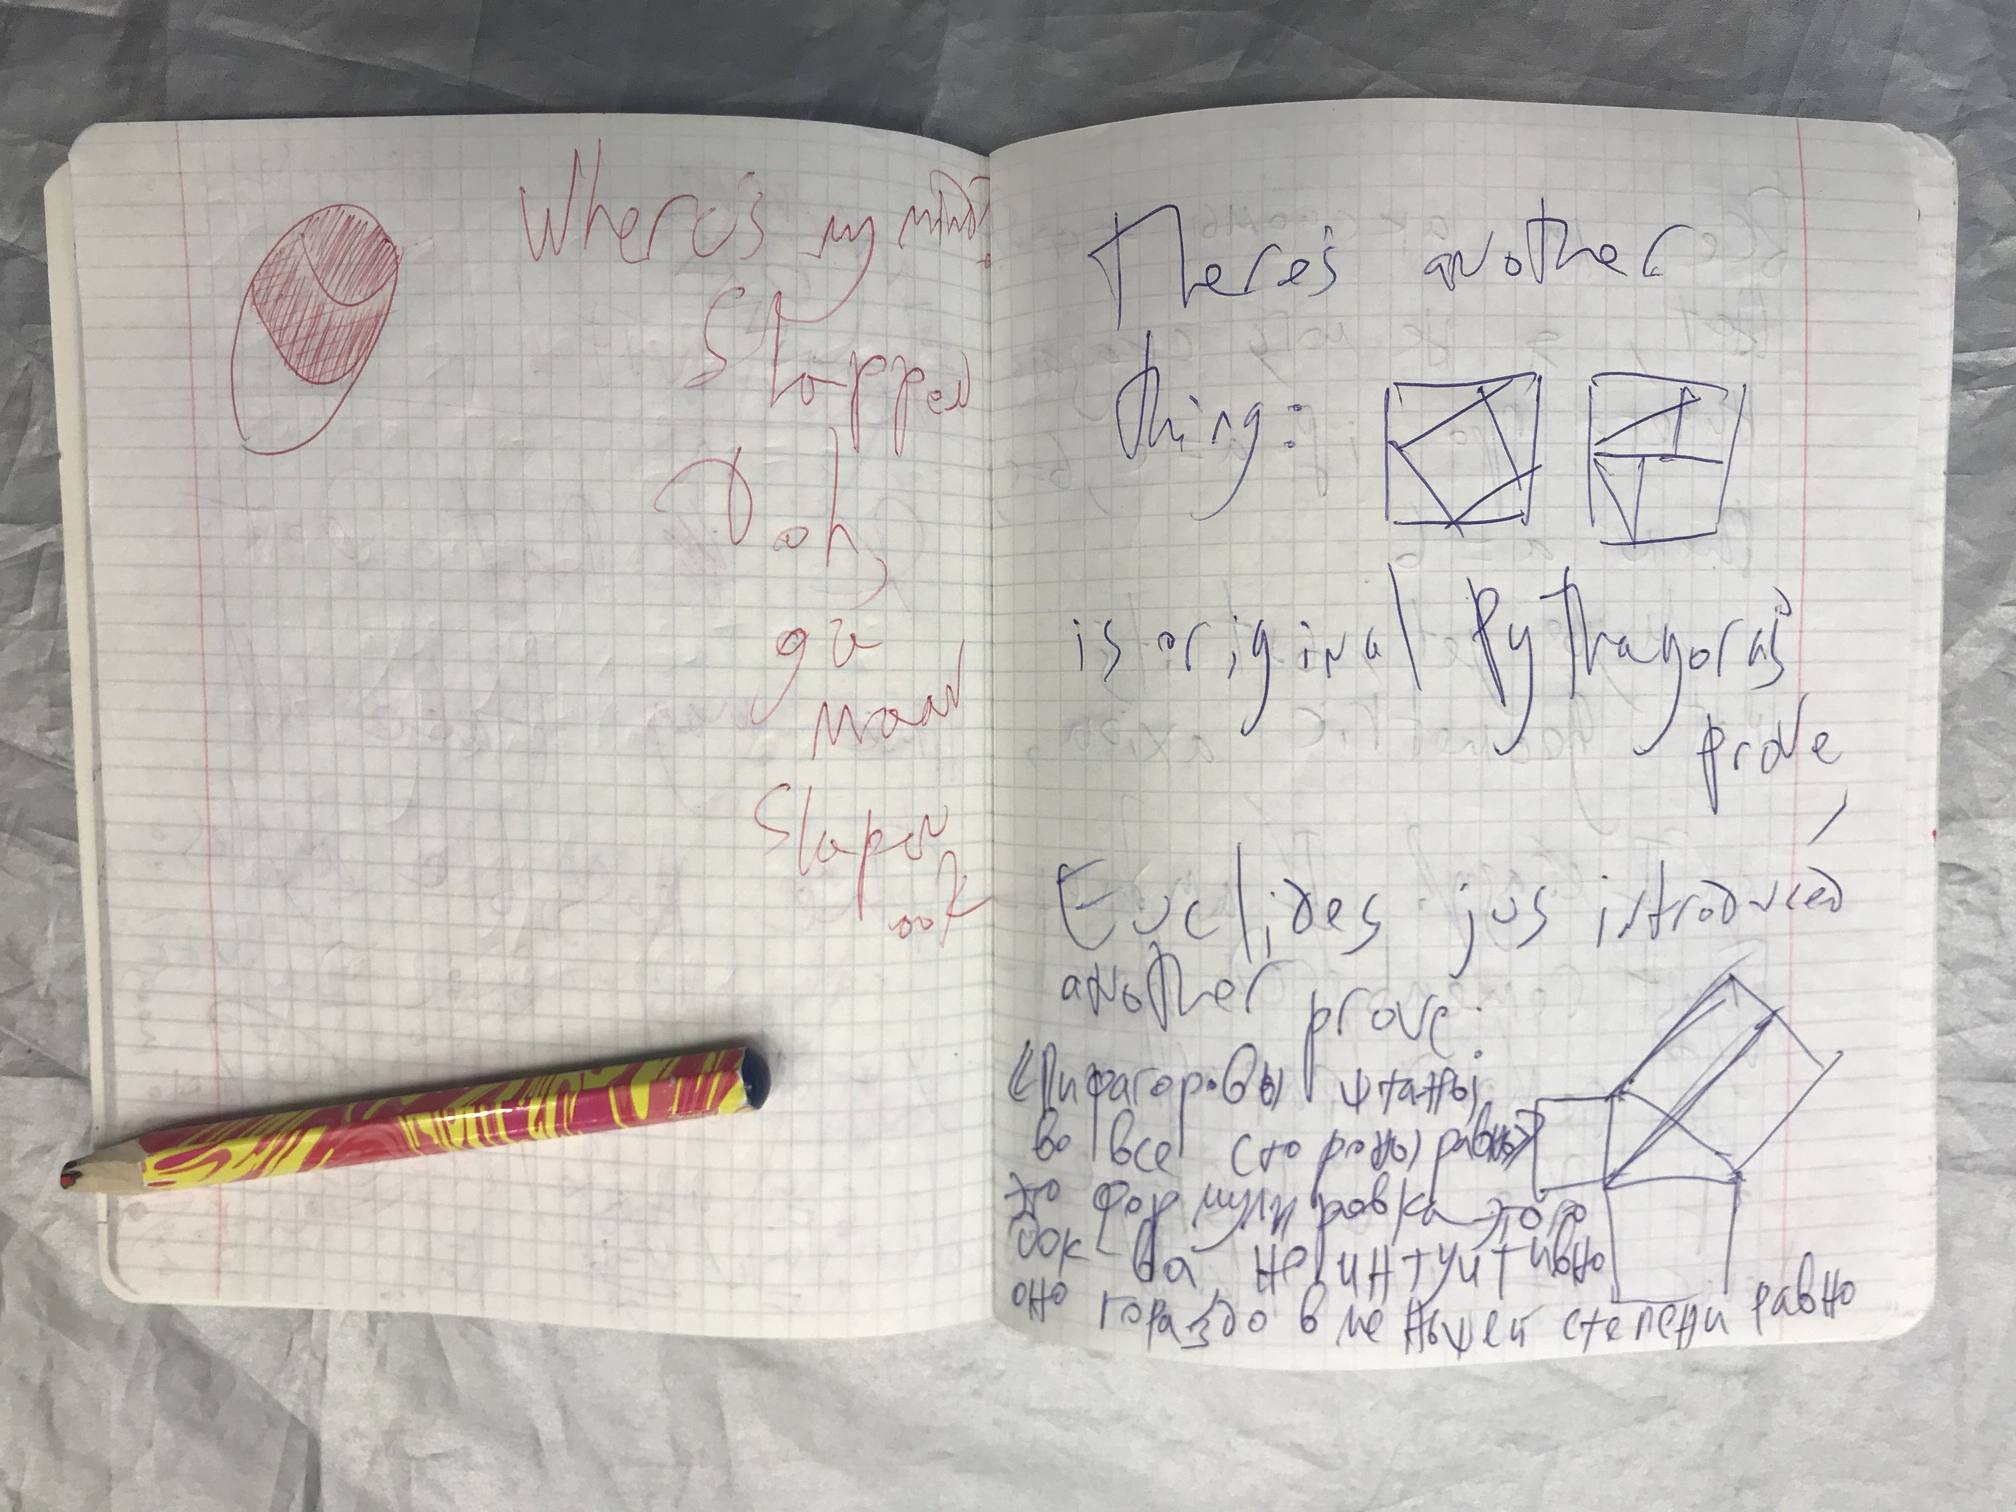 Where's my mind?
Stopped
Doh,
ga
maar
slapen
ook
There's another
thing:
is original Pythagoras'
prove
Euclides jus introduced
another prove:
«Пифагоровы штаны,
во все стороны равны»
это формулировка этого
док-ва не интуитивно
оно гораздо в меньшей степени равно